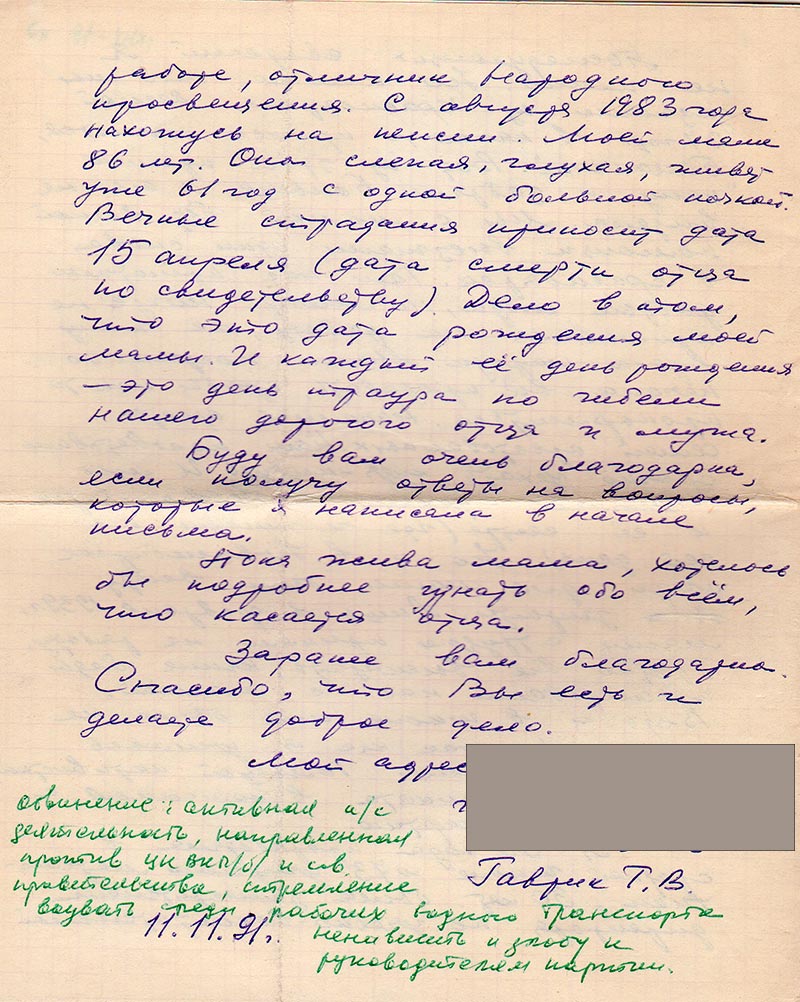 работе, отличник народного
просвещения. С августа 1983 года
нахожусь на пенсии. Моей маме
86 лет. Она слепая, глухая, живет
уже 61 год с одной больной почкой.
Вечные страдания приносит дата
15 апреля (дата смерти отца
по свидетельству). Дело в том,
что это дата рождения моей
мамы. И каждый её день рождения
— это день траура по гибели
нашего дорогого отца и мужа.
Буду вам очень благодарна,
если получу ответы на вопросы,
которые я написала в начале
письма.
Пока жива мама, хотелось
бы подробнее узнать обо всём,
что касается отца.
Заранее вам благодарна.
Спасибо, что Вы есть и
делаете доброе дело.
Мой адрес
Гаврик Т.В.
11.11.91г.
обвинение: активная к/с
деятельность, направленная
против ЦК ВКП/б/ и сов.
правительства, стремление
вызвать среди рабочих водного транспорта
ненависть и злобу к
руководителям партии.